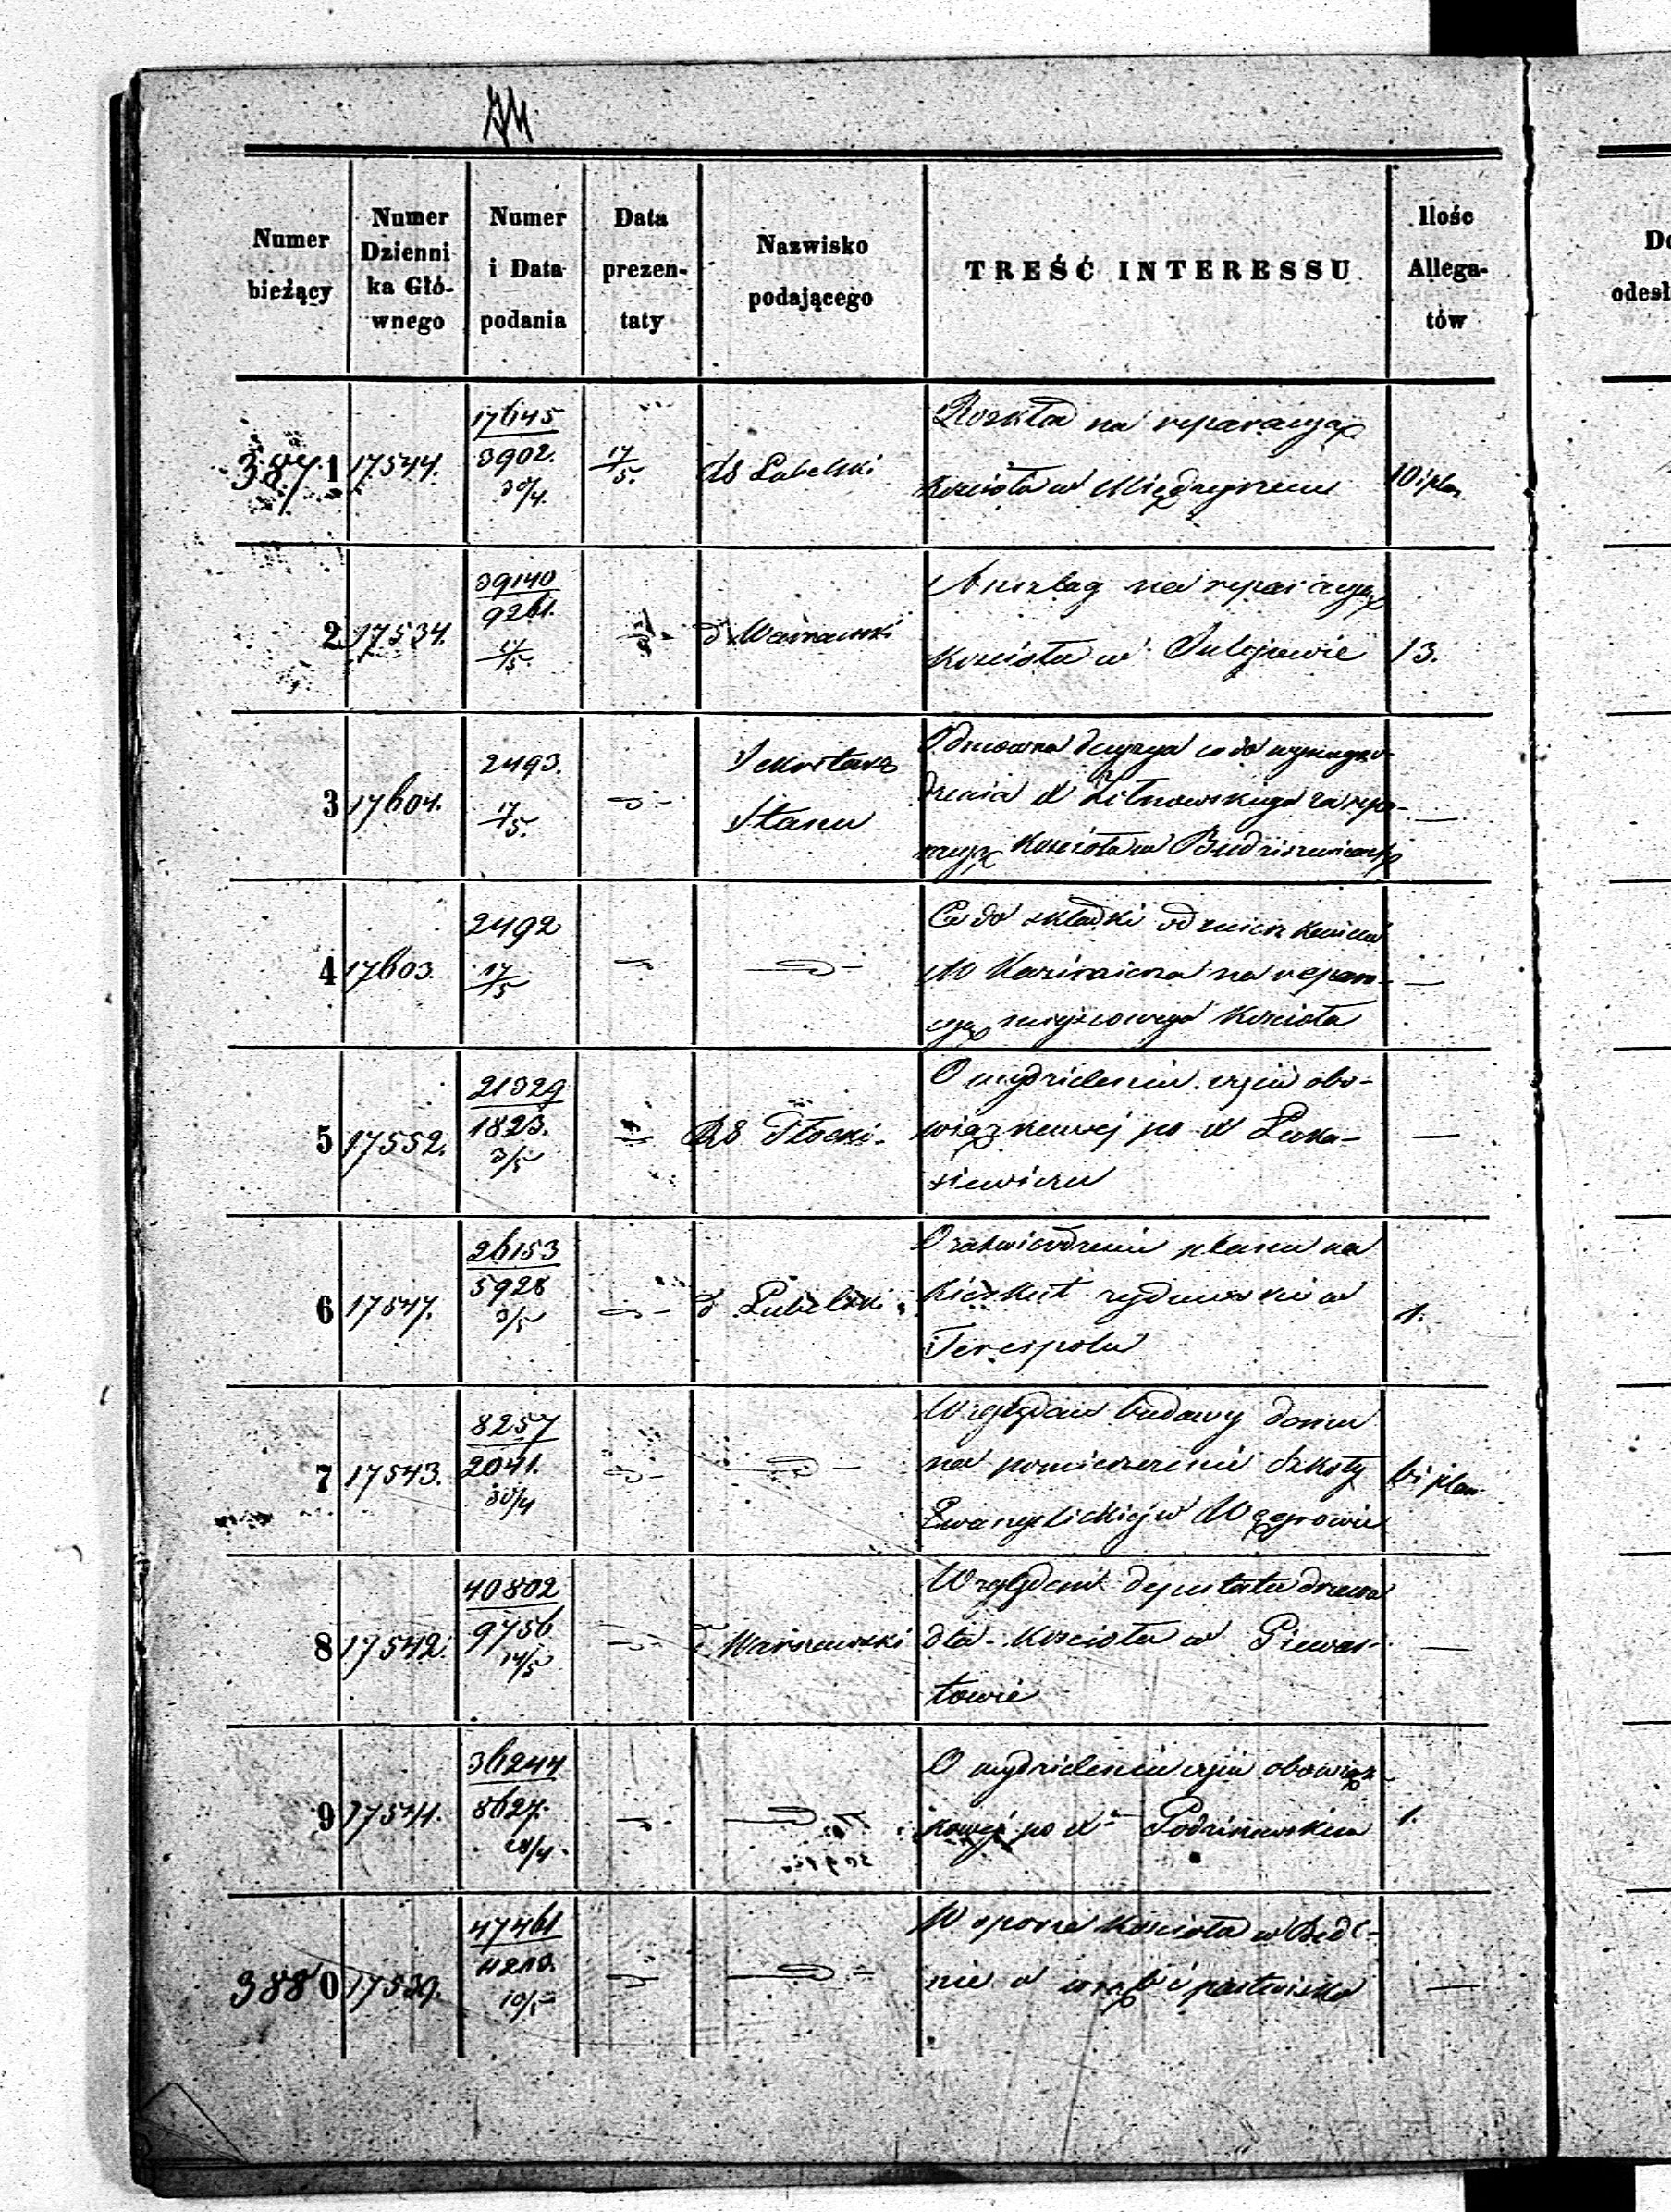 Numer bieżący
Numer Dzienni ka Głó- wnego
Numer i Data podania
Data prezen- taty
Nazwisko podającego
TREŚĆ INTERESSU
Ilośc Allega- tów
3871 17544. 17645 3902. 30/4. 17/5. Lubelski 10 i plan
Rozkład na reparacyą
Kościoła w Międzyrzecu
2 17534. 39140 9261. 17/5. Warszawski 13.
Anszlag na reparacyą
Kościoła w Sulejowie
3 17604. 2493. 17/5. Sekretarz Stanu —
Odmowna decyzya co do wynagro-
dzenia X Żitnowskiego za repa-
racyą Kościoła w Budziszewicach
4 17603. 2492 17/5 —
Co do składki od mieszkańców
M Kazimierza na repara-
cyą miejscowego Kościoła
5 17552. 21329 1823. 3/5 RG Płocki. —
O wydzieleniu części obo-
wiązkowej po X Łuka-
siewiczu
6 17547. 26153 5928 3/5 Lubelski. 1.
O zatwierdzeniu planu na
Kierkut żydowski w
Terespolu
7 17543. 8257 2041. 30/4 6 i plan
Względem budowy domu
na pomieszczenie Szkoły
Ewangelickiej w Węgrowie
8 17542. 40802 9756 14/5 Warszawski —
Względem deputatu drzewa
dla Kościoła w
towie
9 17541. 36244 8627. 28/4. 1.
O wydzieleniu części obowiąz-
kowej po X
3880 17539. 47461 10/5 —
W sporze Kościoła w Bedl-
nie o wrąb i pastwisko
Do
odesł